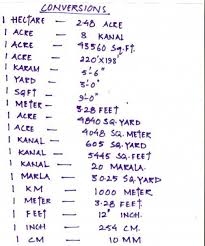 CONVERSIONS
1 HECTARE - 2.48 ACRE
1 ACRE - 8 KANAL
1 ACRE - 43560 SQ.FT.
1 ACRE - 220'X198'
1 KARAM - 5'-6"
1 YARD - 3'-0"
1 SQFT - 9'-0"
1 METER - 3.28 FEET
1 ACRE - 4840 SQ.YARD
1 ACRE - 4048 SQ.METER
1 KANAL - 605 SQ.YARD
1 KANAL - 5445 SQ.FEET
1 KANAL - 20 MARALA
1 MARLA - 30.25 SQ.YARD
1 KM - 1000 METER
1 METER - 3.28 FEET
1 FEET - 12" INCH.
1 INCH - 2.54 CM.
1 CM - 10 MM